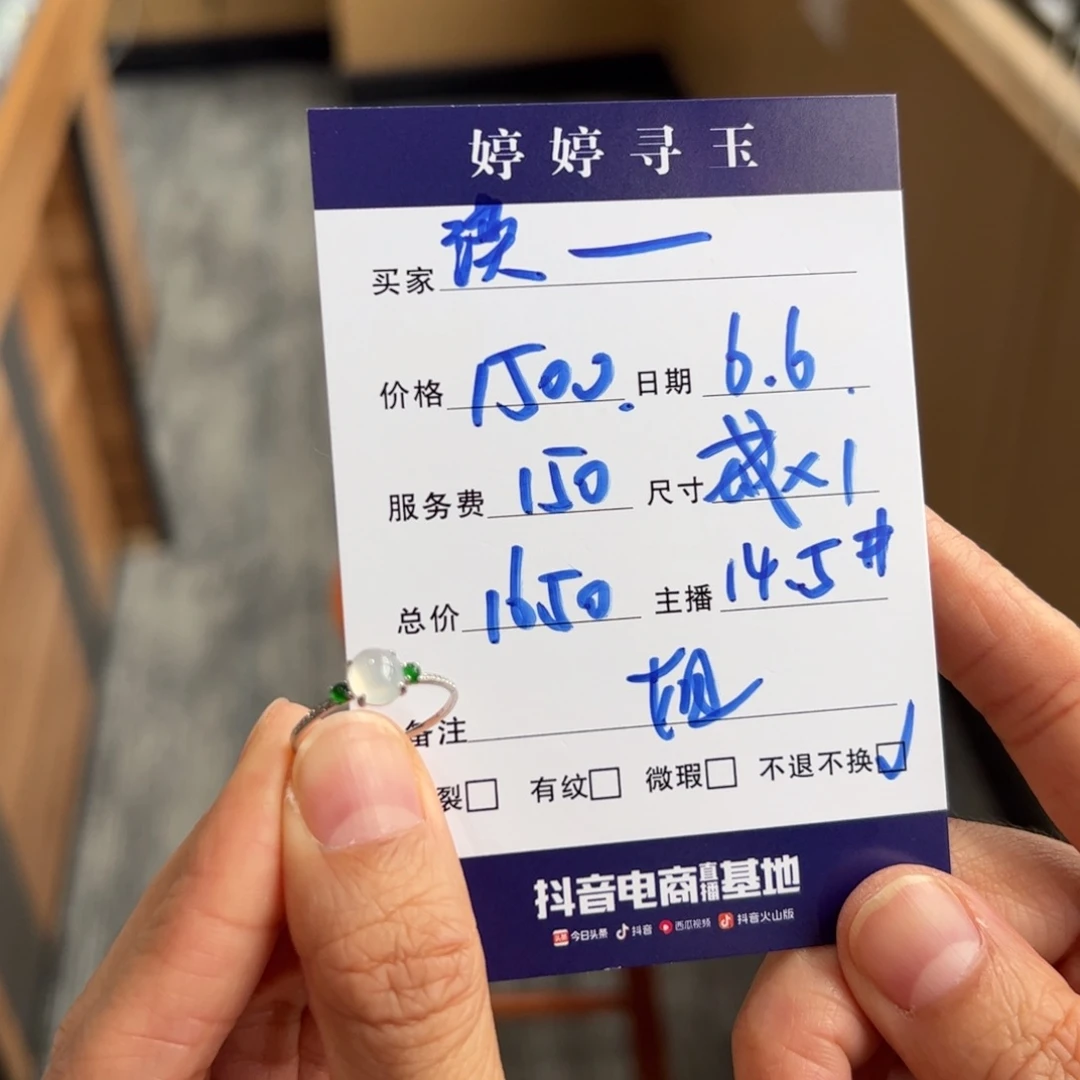 婷婷寻玉
买家 一
价格 1500. 日期 6.6.
服务费 150 尺寸 戒×1
总价 1650 主播 145#
备注
裂 有纹 微瑕 不退不换 ✓
抖音电商直播基地
头条 今日头条 抖音 西瓜视频 抖音火山版